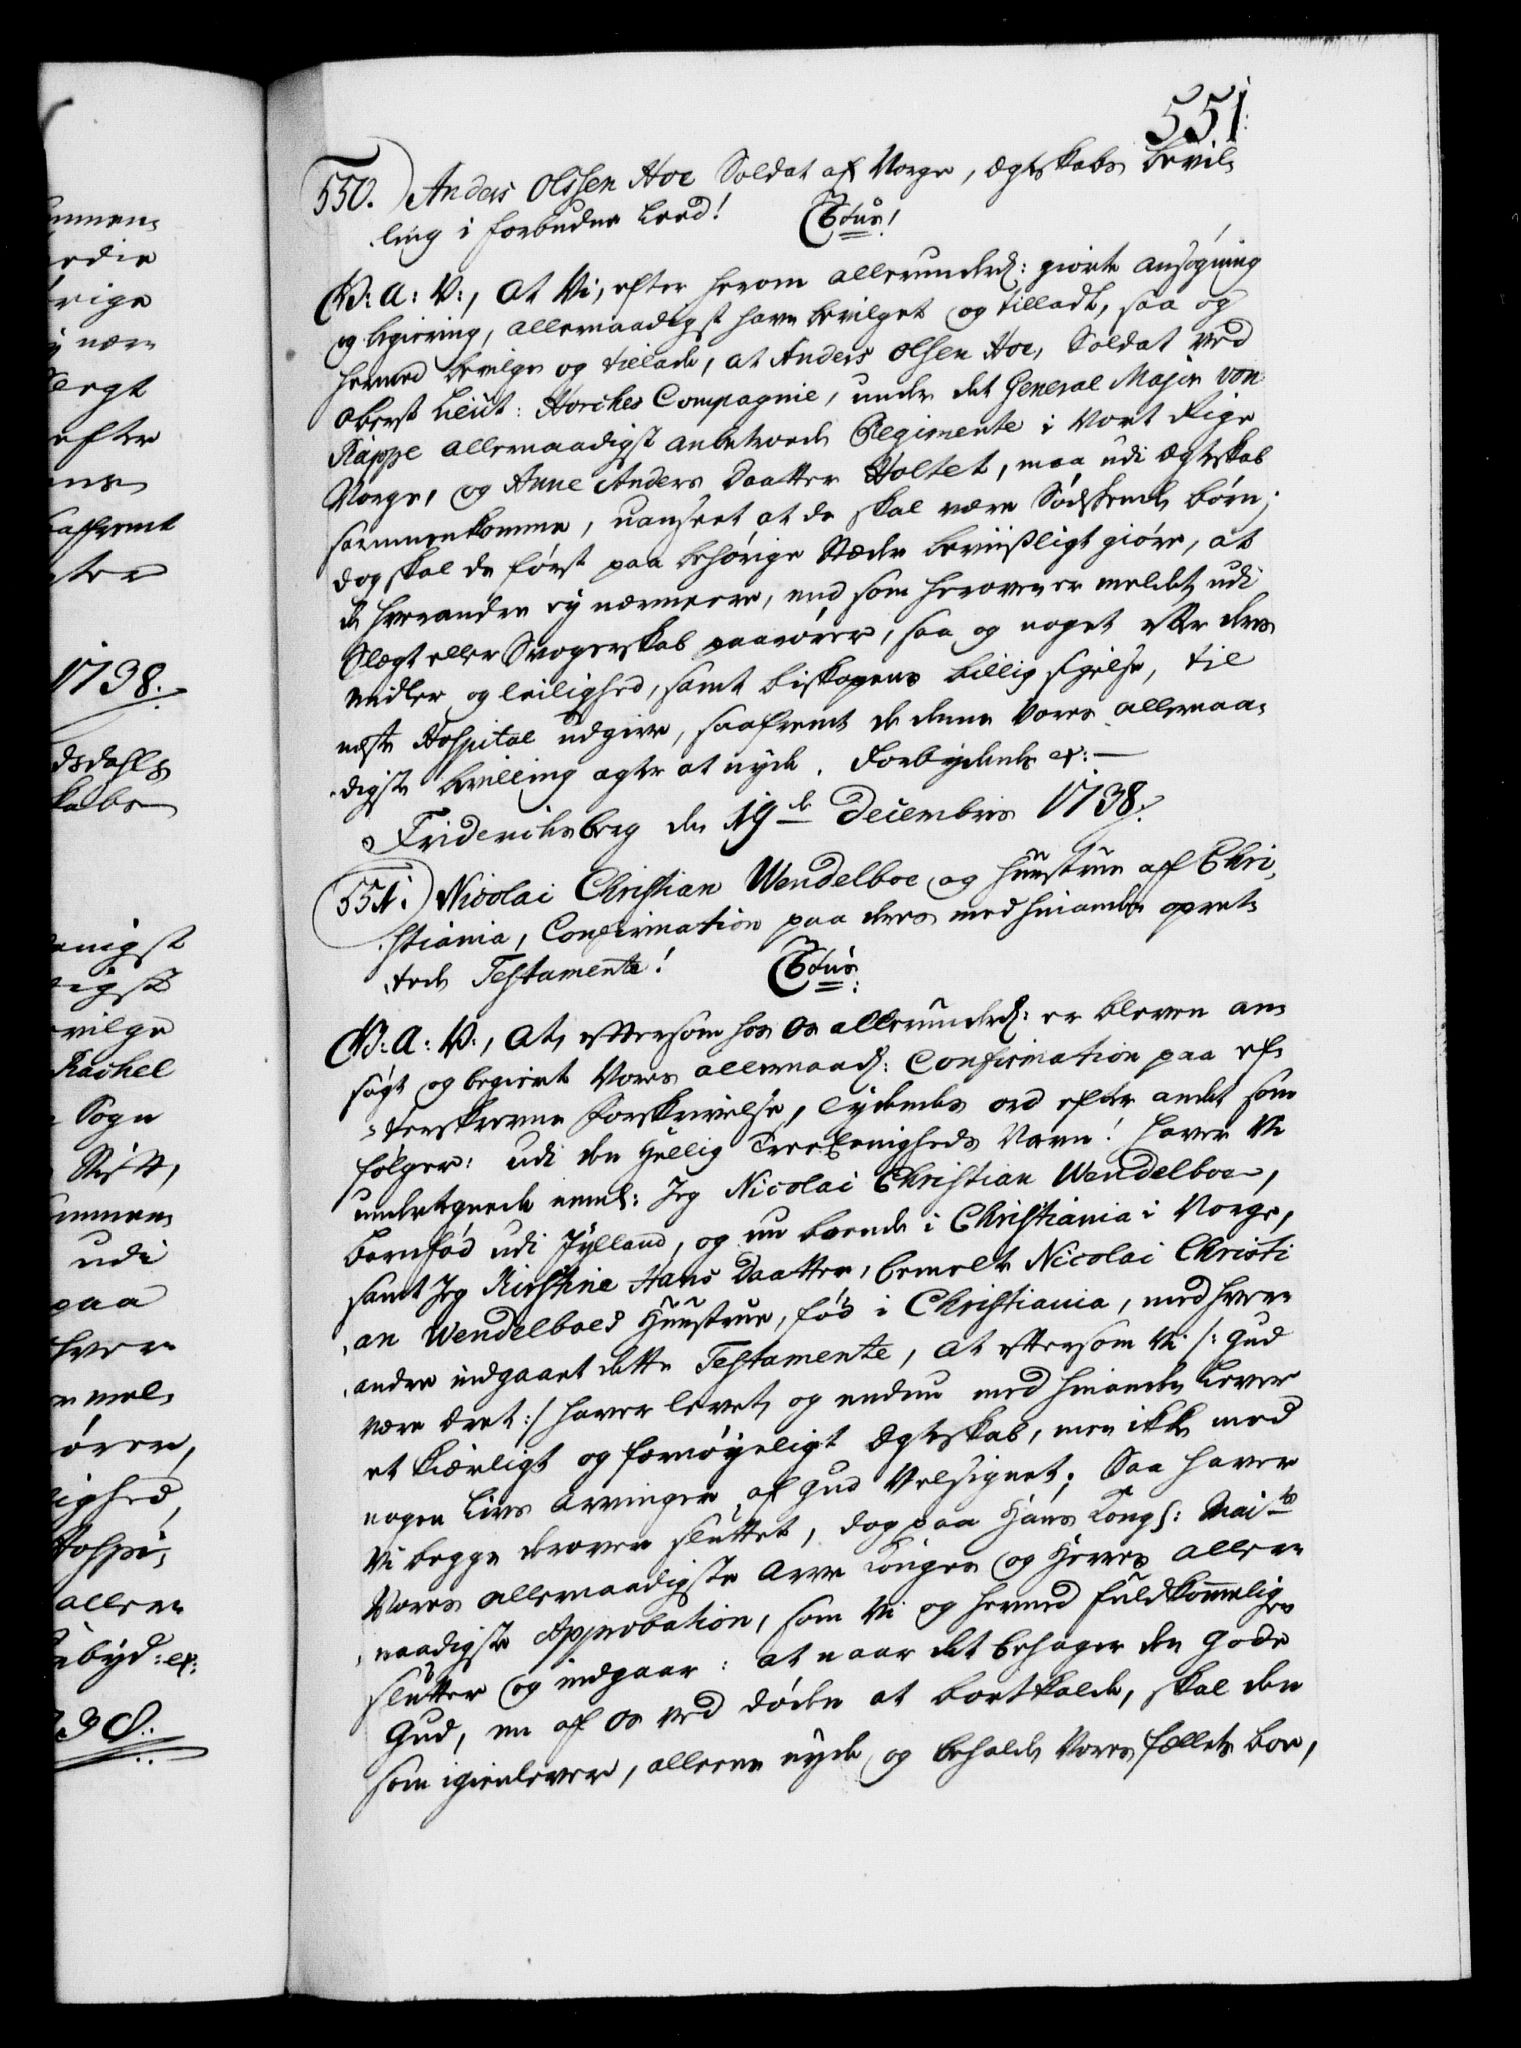 551.
550. Anders Olssen Hoe Soldat af Norge, Ægteskabs Bevil-
ling i forbudne Leed! Ctus!
G: A: V:, at Vi, efter herom allerunderd: giorte ansøgning
og begiering, allernaadigst have bevilget og tilladt, saa og
hermed bevilge og tillade, at Anders Olsen Hoe, Soldat ved
Oberst Lieut: Horches Compagnie, under det General Major von
Rappe allernaadigst anbetroede Regimente i Vort Rige
Norge, og Anne Anders Daatter Holtet, maa udi Ægteskab
sammenkomme, uanseet at de skal være Sødskende børn;
dog skal de først paa behørige Stæder beviißligt giøre, at
de hverandre ey nærmere, end som heroven er meldet, udi
Slægt eller Svogerskab paarører, saa og noget efter deres
Midler og leilighed, samt Biskopens billig sigelse, til
næste Hospital udgive, saafremt de denne Vores allernaa-
digste bevilling agter at nyde. Forbydendes ex:
Friderichsberg den 19de Decembris 1738.
551. Nicolai Christian Wendelboe og Huustrue af Chri-
stiania, Confirmation paa deres med hinanden opret-
tede Testamente! Ctus:
G: A: V:, at, eftersom hos Os allerunderd: er bleven an-
søgt og begiert Vores allernaad: Confirmation paa ef-
terskrevne Forskrivelse, lydendes ord efter andet som
følger: udi den Hellig Treeenigheds Navn! haver Vi
undertegnede neml: Jeg Nicolai Christian Wendelboe,
barnfød udi Jylland, og nu boende i Christiania i Norge,
samt Jeg Kirstine Hans Daatter, bemelte Nicolai Christi-
an Wendelboes Huustrue, fød i Christiania, med hver-
andre indgaaet dette Testamente, at eftersom Vi /: Gud
være æret :/ haver levet, og endnu med hinanden lever
et kierligt og fornøyeligt Ægteskab, men ikke med
nogen Livs Arvinger af Gud Velsignet; Saa haver
Vi begge derover sluttet, dog paa Hans Kongl: Maits
Vores allernaadigste Arve Konges og Herres aller-
naadigste Approbation, som Vi og hermed fuldkommelig
slutter og indgaar: at naar det behager den gode
Gud, en af Os ved døden at bortkalde, skal den
som igienlever, alleene nyde og beholde Vores fælles boe,